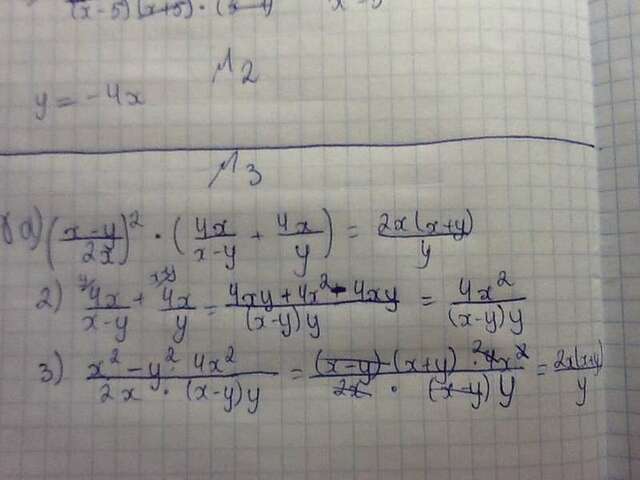 (x-5)(x+5)·(
№2
y = -4x
№3
а) ((x-y)/(2x))² · (4x/(x-y) + 4x/y) = 2x(x+y)/y
2) 4x/(x-y) + 4x/y = (4xy + 4x² - 4xy)/((x-y)y) = 4x²/((x-y)y)
3) (x² - y² · 4x²)/(2x · (x-y)y) = ((x-y)·(x+y)·²4x²)/(2x · (x-y)y) = 2x(x+y)/y